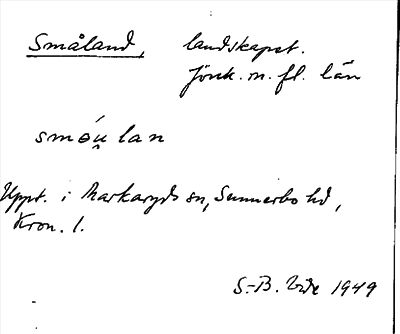 Småland, landskapet.
Jönk. m. fl. län
sməúlan
Uppt. i Markaryds sn, Sunnerbo hd,
Kron. l.
S.-B. Vide 1949